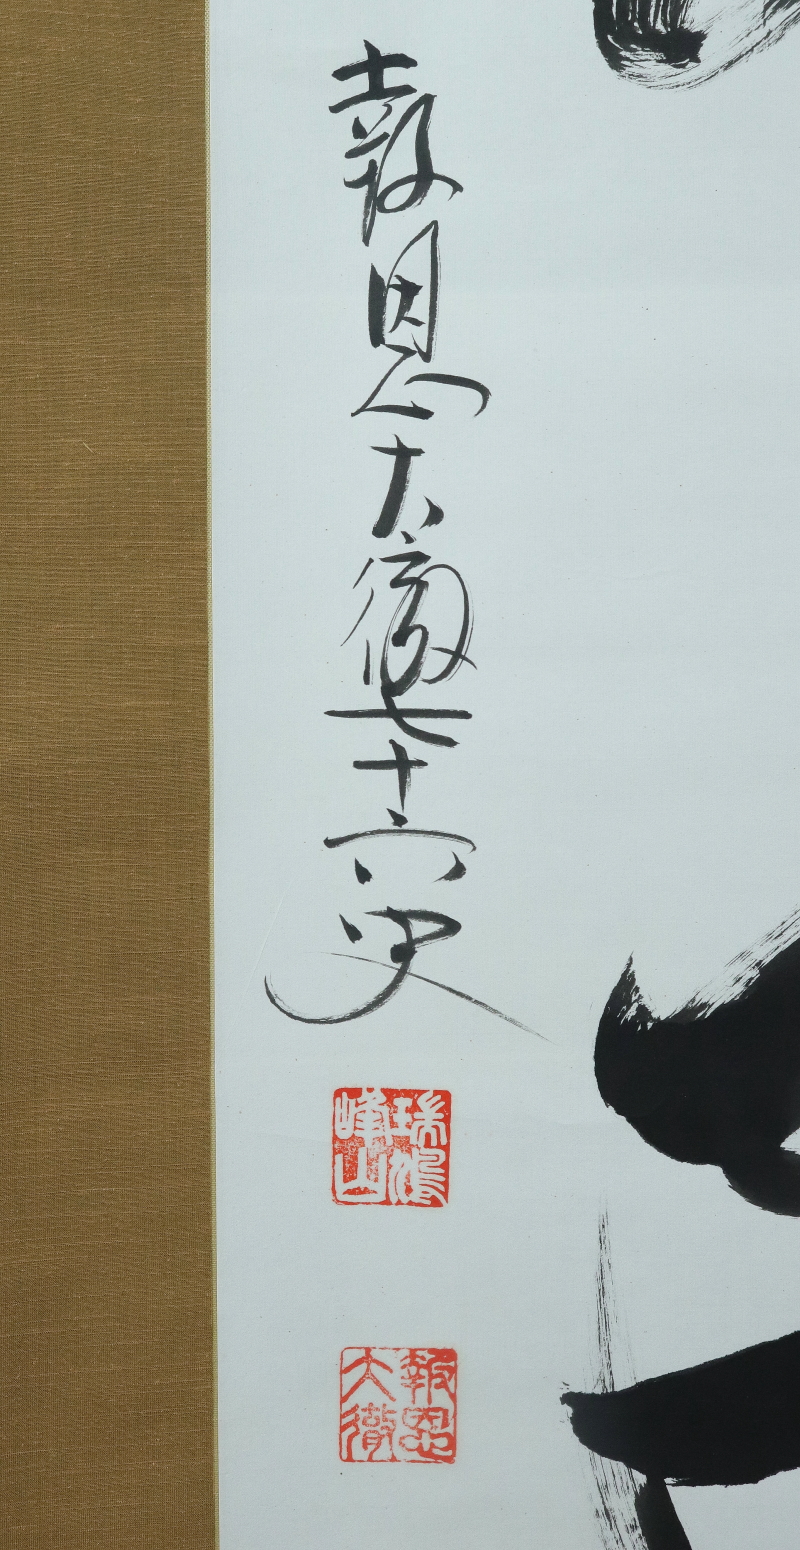 報恩大徹七十六叟
瑞鳩峰山
報恩大徹